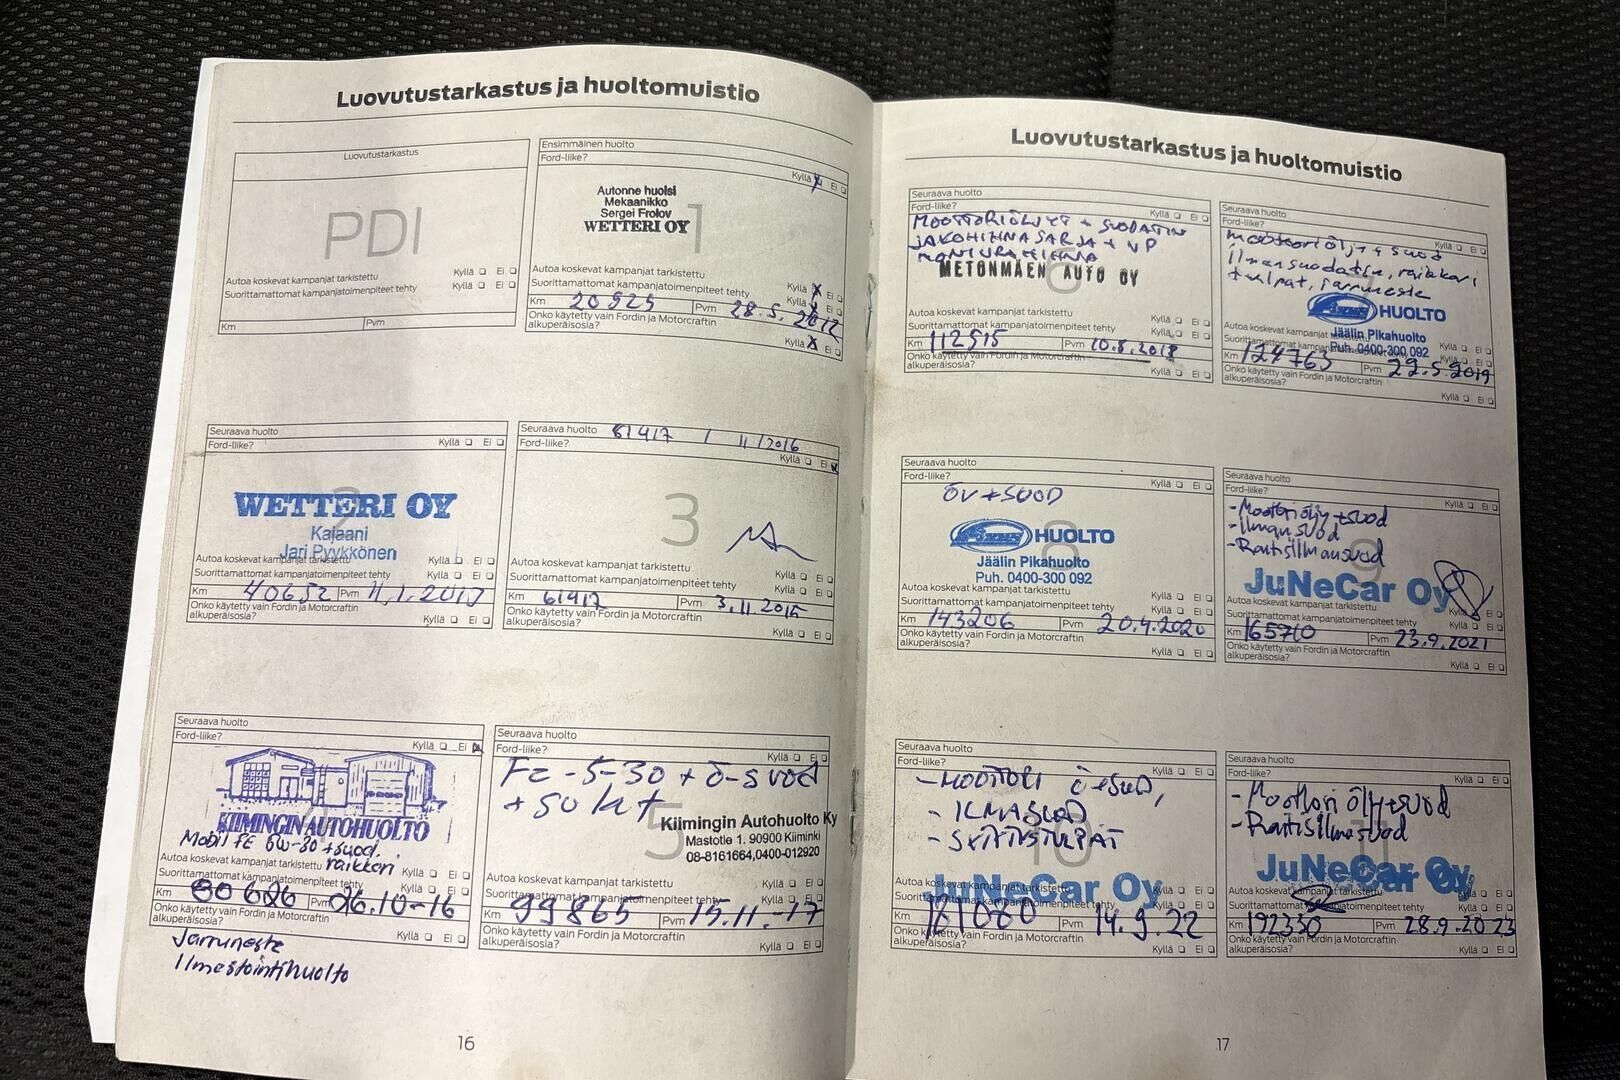 Luovutustarkastus ja huoltomuistio
Luovutustarkastus
PDI
Autoa koskevat kampanjat tarkistettu Kyllä Ei
Suorittamattomat kampanjatoimenpiteet tehty Kyllä Ei
Km Pvm
Ensimmäinen huolto
Ford-liike?
Kyllä X Ei
Autonne huolsi
Mekaanikko
Sergei Frolov
WETTERI OY
1
Autoa koskevat kampanjat tarkistettu
Kyllä X Ei
Suorittamattomat kampanjatoimenpiteet tehty
Kyllä X Ei
Km 20525 Pvm 28.5.2012
Onko käytetty vain Fordin ja Motorcraftin
alkuperäisosia?
Kyllä X Ei
Seuraava huolto
Ford-liike? Kyllä Ei
2
WETTERI OY
Kajaani
Jari Pyykkönen
Autoa koskevat kampanjat tarkistettu Kyllä Ei
Suorittamattomat kampanjatoimenpiteet tehty Kyllä Ei
Km 40652 Pvm
Onko käytetty vain Fordin ja Motorcraftin
alkuperäisosia? Kyllä Ei
Seuraava huolto 61417 / 11/2016
Ford-liike?
Kyllä Ei X
3
Autoa koskevat kampanjat tarkistettu
Kyllä Ei
Suorittamattomat kampanjatoimenpiteet tehty
Kyllä Ei
Km 61417 Pvm 3.11.2015
Onko käytetty vain Fordin ja Motorcraftin
alkuperäisosia? Kyllä Ei
Seuraava huolto
Ford-liike? Kyllä Ei X
KIIMINGIN AUTOHUOLTO
Mobil FE 5w-30 + suod.
raikkari
Autoa koskevat kampanjat tarkistettu Kyllä Ei
Suorittamattomat kampanjatoimenpiteet tehty Kyllä Ei
Km 80626 Pvm 26.10-16
Onko käytetty vain Fordin ja Motorcraftin
alkuperäisosia? Kyllä Ei
Jarruneste
Ilmastointihuolto
Seuraava huolto
Ford-liike?
Kyllä Ei
FE -5-30 + ö-suod
5
Kiimingin Autohuolto Ky
Mastotie 1, 90900 Kiiminki
08-8161664,0400-012920
Autoa koskevat kampanjat tarkistettu Kyllä Ei
Suorittamattomat kampanjatoimenpiteet tehty Kyllä Ei
Km 99865 Pvm 15.11.-17
Onko käytetty vain Fordin ja Motorcraftin
alkuperäisosia? Kyllä Ei
16
Luovutustarkastus ja huoltomuistio
Seuraava huolto
Ford-liike? Kyllä Ei
MOOTTORIÖLJYT + SUODATIN
JAKOHIHNASARJA + VP
MONIURAHIHNA
6
METONMÄEN AUTO OY
Autoa koskevat kampanjat tarkistettu
Kyllä Ei
Suorittamattomat kampanjatoimenpiteet tehty
Kyllä Ei
Km 112515 Pvm 10.8.2018
Onko käytetty vain Fordin ja Motorcraftin
alkuperäisosia? Kyllä Ei
Seuraava huolto
Ford-liike? Kyllä Ei
moottoriöljy + suod
Ilmansuodatin, raikkari
tulpat, jarruneste
HUOLTO
Jäälin Pikahuolto
Puh. 0400-300 092
Autoa koskevat kampanjat tarkistettu Kyllä Ei
Suorittamattomat kampanjatoimenpiteet tehty Kyllä Ei
Km 124763 Pvm 22.5.2019
Onko käytetty vain Fordin ja Motorcraftin
alkuperäisosia? Kyllä Ei
Seuraava huolto
Ford-liike? Kyllä Ei
ÖV + SUOD
8
HUOLTO
Jäälin Pikahuolto
Puh. 0400-300 092
Autoa koskevat kampanjat tarkistettu Kyllä Ei
Suorittamattomat kampanjatoimenpiteet tehty Kyllä Ei
Km 143206 Pvm 20.4.2020
Onko käytetty vain Fordin ja Motorcraftin
alkuperäisosia? Kyllä Ei
Seuraava huolto
Ford-liike? Kyllä Ei
- Moottoriöljy + suod
- Ilmansuod
- Raitisilmansuod
9
JuNeCar Oy
Autoa koskevat kampanjat tarkistettu Kyllä Ei
Suorittamattomat kampanjatoimenpiteet tehty Kyllä Ei
Km 165710 Pvm 23.9.2021
Onko käytetty vain Fordin ja Motorcraftin
alkuperäisosia? Kyllä Ei
Seuraava huolto
Ford-liike? Kyllä Ei
- MOOTTORI
- ILMASUOD
- SYTYTYSTULPAT
10
Autoa koskevat kampanjat tarkistettu Kyllä Ei
JuNeCar Oy
Suorittamattomat kampanjatoimenpiteet tehty Kyllä Ei
Km 181080 Pvm 14.9.22
Onko käytetty vain Fordin ja Motorcraftin
alkuperäisosia? Kyllä Ei
Seuraava huolto
Ford-liike? Kyllä Ei
- Moottori öljy+suod
- Raitisilmasuod
11
JuNeCar Oy
Autoa koskevat kampanjat tarkistettu Kyllä Ei
Suorittamattomat kampanjatoimenpiteet tehty Kyllä Ei
Km 192330 Pvm 28.9.2023
Onko käytetty vain Fordin ja Motorcraftin
alkuperäisosia? Kyllä Ei
17